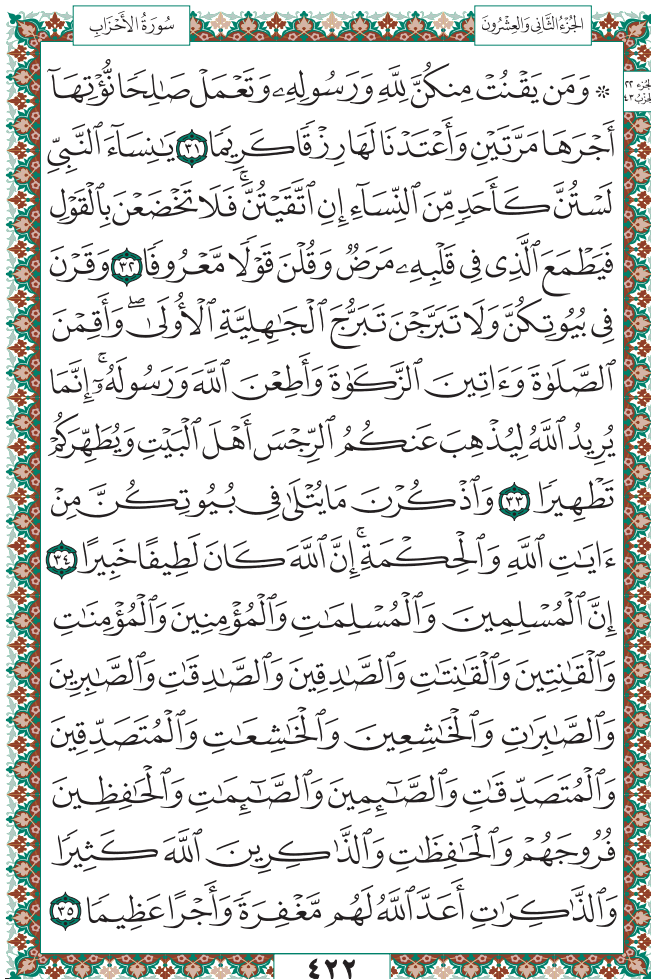 سُورَةُ الأَحْزَابِ
الجُزْءُ الثَّانِي وَالعِشْرُونَ
الجزء ٢٢
الحزب ٤٣
۞ وَمَن يَقْنُتْ مِنكُنَّ لِلَّهِ وَرَسُولِهِۦ وَتَعْمَلْ صَٰلِحًا نُّؤْتِهَآ
أَجْرَهَا مَرَّتَيْنِ وَأَعْتَدْنَا لَهَا رِزْقًا كَرِيمًا ٣١ يَٰنِسَآءَ ٱلنَّبِيِّ
لَسْتُنَّ كَأَحَدٍ مِّنَ ٱلنِّسَآءِ إِنِ ٱتَّقَيْتُنَّۚ فَلَا تَخْضَعْنَ بِٱلْقَوْلِ
فَيَطْمَعَ ٱلَّذِى فِى قَلْبِهِۦ مَرَضٌ وَقُلْنَ قَوْلًا مَّعْرُوفًا ٣٢ وَقَرْنَ
فِى بُيُوتِكُنَّ وَلَا تَبَرَّجْنَ تَبَرُّجَ ٱلْجَٰهِلِيَّةِ ٱلْأُولَىٰۖ وَأَقِمْنَ
ٱلصَّلَوٰةَ وَءَاتِينَ ٱلزَّكَوٰةَ وَأَطِعْنَ ٱللَّهَ وَرَسُولَهُۥٓۚ إِنَّمَا
يُرِيدُ ٱللَّهُ لِيُذْهِبَ عَنكُمُ ٱلرِّجْسَ أَهْلَ ٱلْبَيْتِ وَيُطَهِّرَكُمْ
تَطْهِيرًا ٣٣ وَٱذْكُرْنَ مَا يُتْلَىٰ فِى بُيُوتِكُنَّ مِنْ
ءَايَٰتِ ٱللَّهِ وَٱلْحِكْمَةِۚ إِنَّ ٱللَّهَ كَانَ لَطِيفًا خَبِيرًا ٣٤
إِنَّ ٱلْمُسْلِمِينَ وَٱلْمُسْلِمَٰتِ وَٱلْمُؤْمِنِينَ وَٱلْمُؤْمِنَٰتِ
وَٱلْقَٰنِتِينَ وَٱلْقَٰنِتَٰتِ وَٱلصَّٰدِقِينَ وَٱلصَّٰدِقَٰتِ وَٱلصَّٰبِرِينَ
وَٱلصَّٰبِرَٰتِ وَٱلْخَٰشِعِينَ وَٱلْخَٰشِعَٰتِ وَٱلْمُتَصَدِّقِينَ
وَٱلْمُتَصَدِّقَٰتِ وَٱلصَّٰٓئِمِينَ وَٱلصَّٰٓئِمَٰتِ وَٱلْحَٰفِظِينَ
فُرُوجَهُمْ وَٱلْحَٰفِظَٰتِ وَٱلذَّٰكِرِينَ ٱللَّهَ كَثِيرًا
وَٱلذَّٰكِرَٰتِ أَعَدَّ ٱللَّهُ لَهُم مَّغْفِرَةً وَأَجْرًا عَظِيمًا ٣٥
٤٢٢